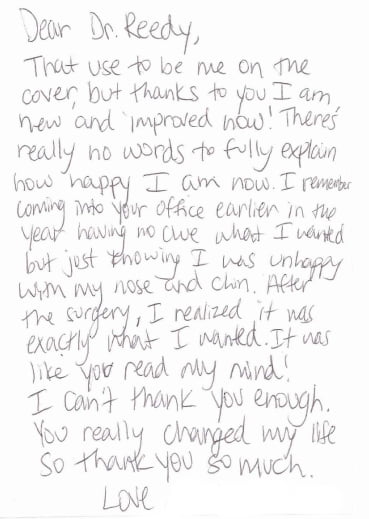 Dear Dr. Reedy,
That use to be me on the
cover, but thanks to you I am
new and improved now! There's
really no words to fully explain
how happy I am now. I remember
coming into your office earlier in the
year having no clue what I wanted
but just knowing I was unhappy
with my nose and chin. After
the surgery, I realized it was
exactly what I wanted. It was
like you read my mind!
I can't thank you enough.
You really changed my life
so thank you so much.
Love